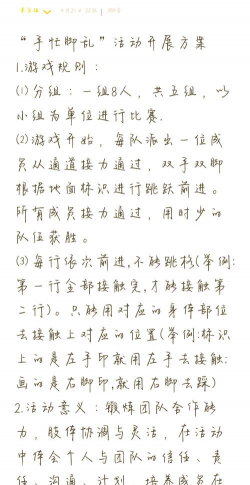 “手忙脚乱”活动开展方案
1.游戏规则：
(1)分组：一组8人，共五组，以
小组为单位进行比赛.
(2)游戏开始，每队派出一位成
员从通道接力通过，双手双脚
根据地面标识进行跳跃前进。
所有成员接力通过，用时少的
队伍获胜。
(3)每行依次前进,不能跳格(举例:
第一行全部接触完,才能接触第
二行)。只能用对应的身体部位
去接触上对应的位置(举例:标识
上的是左手印就用左手去接触;
画的是右脚印,就用右脚去踩)
2.活动意义：锻炼团队合作能
力，肢体协调与灵活，在活动
中体会个人与团队的信任、责
任、沟通、计划，培养成员在